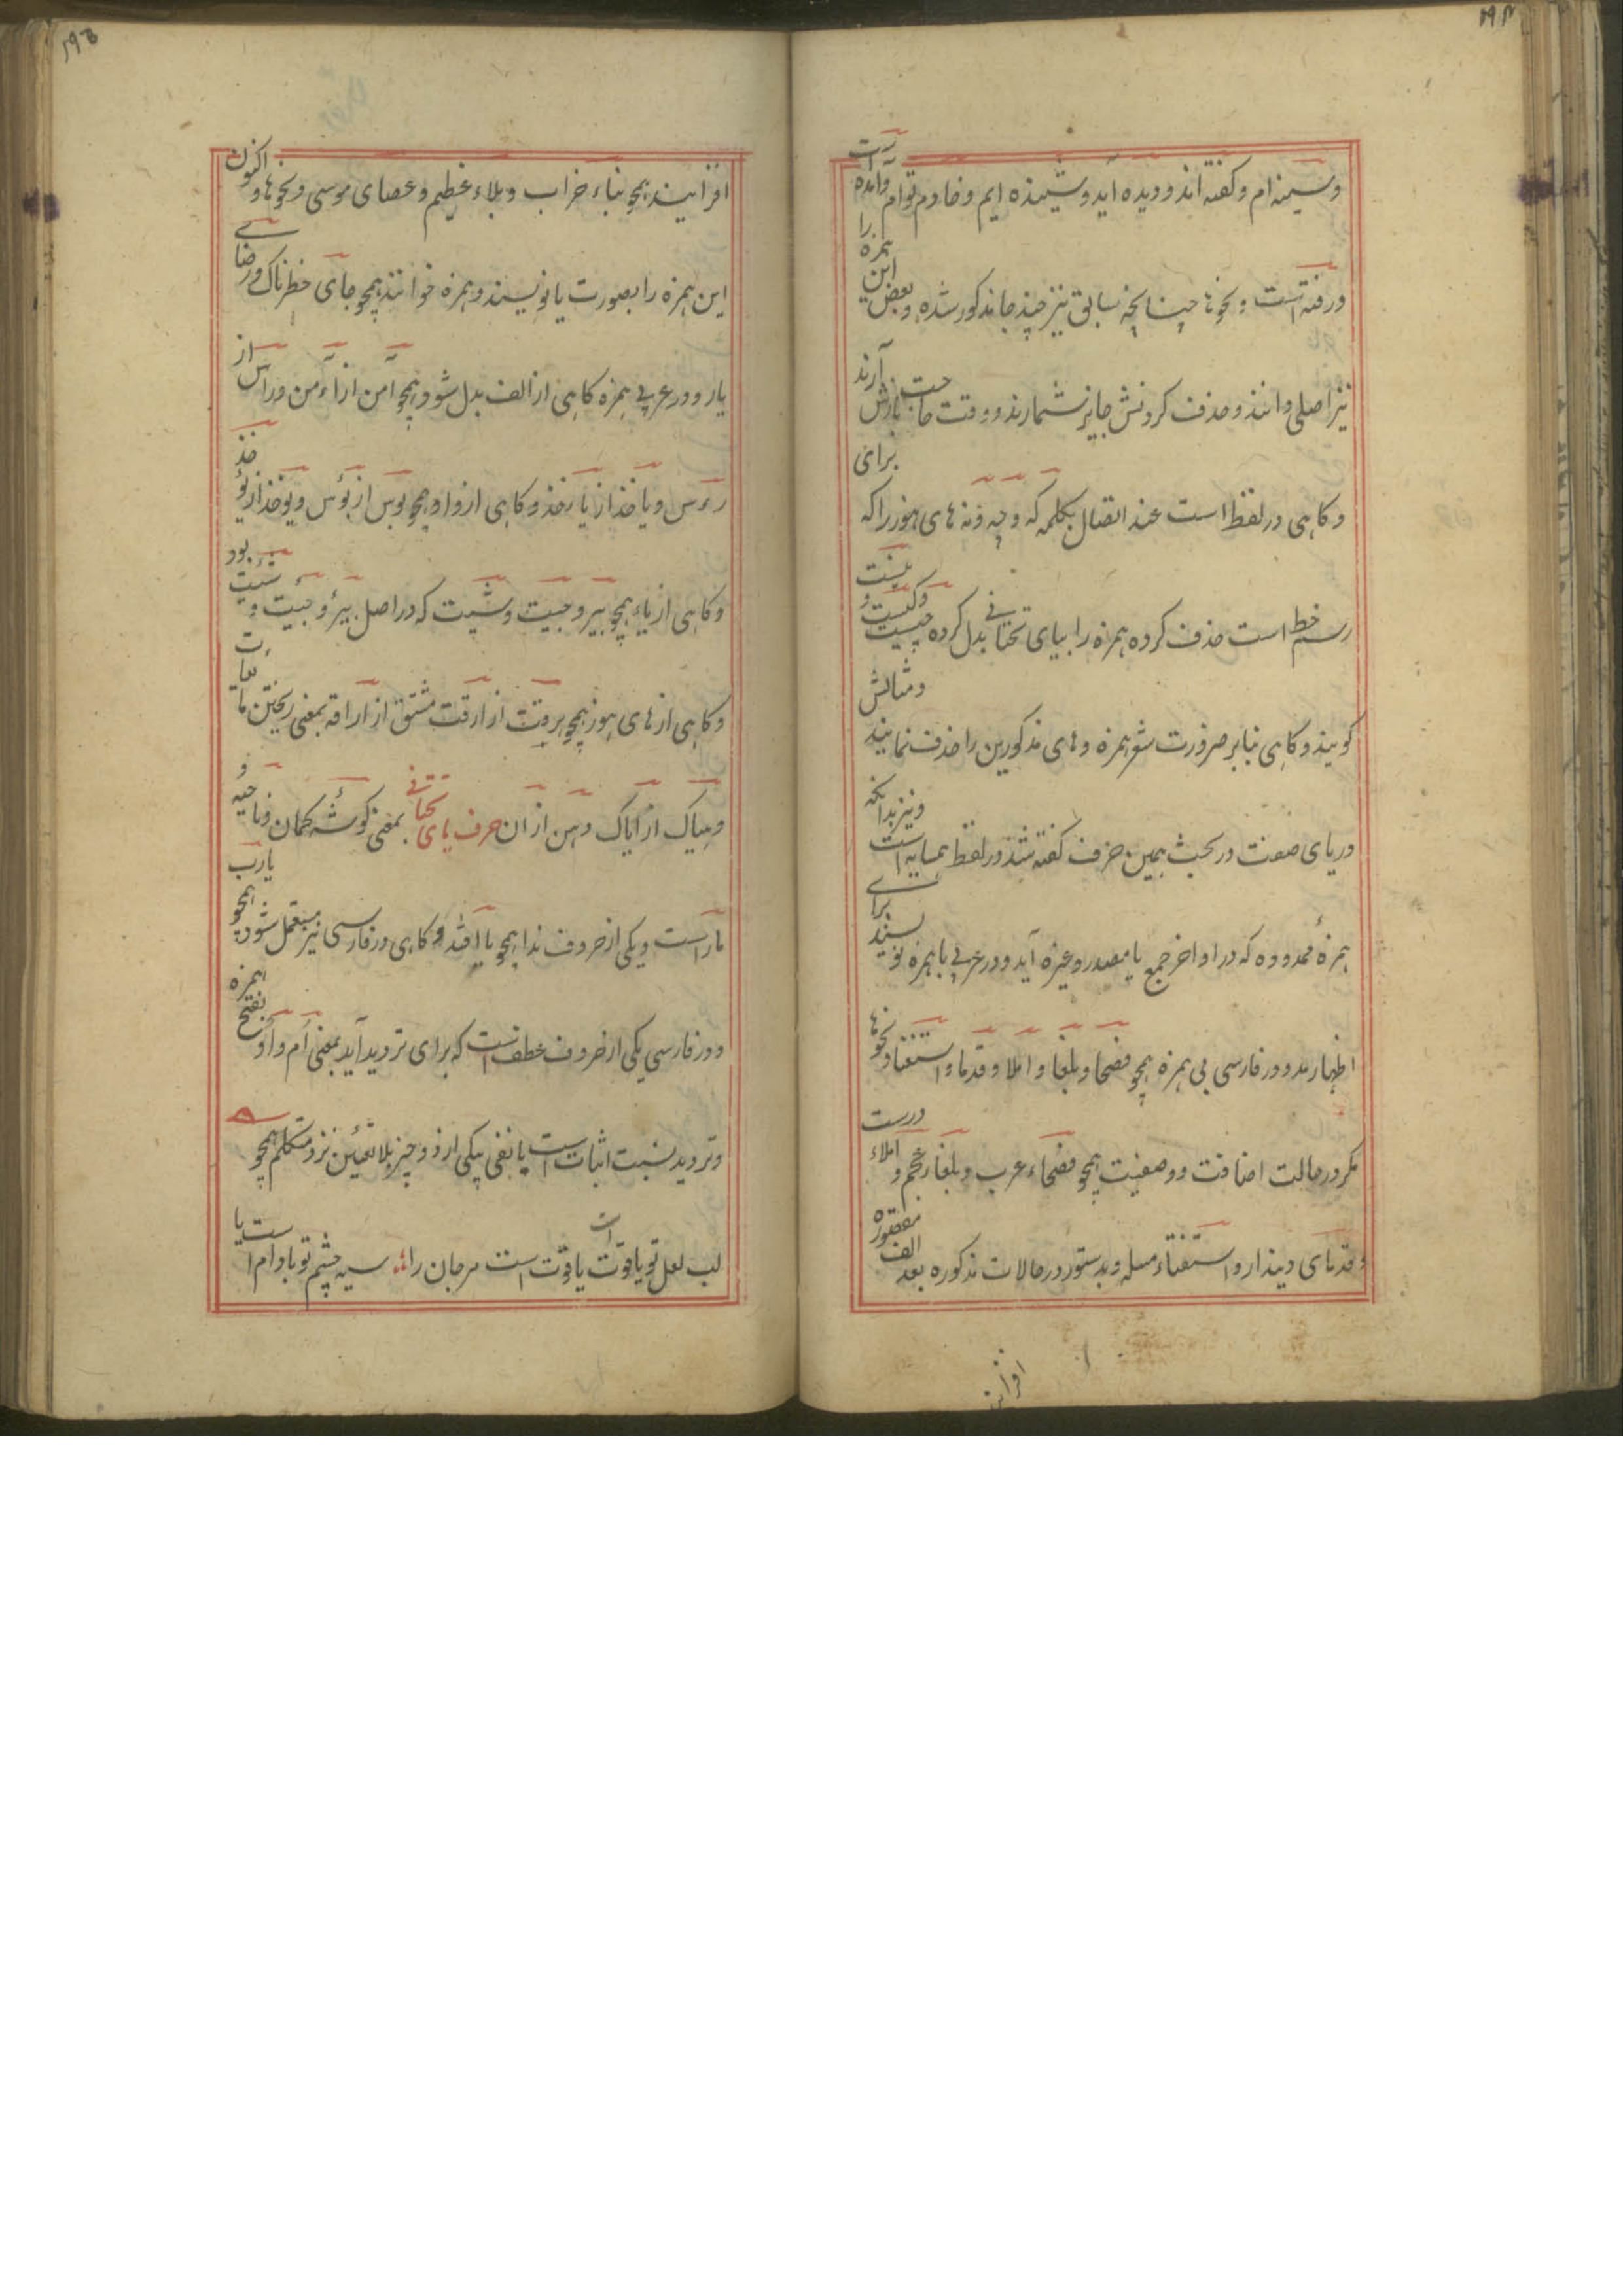 ۲۹۴
وسیمنه ام و کفته اند و دیده آید و شنیده ایم و خادم تو ام و آمده است
و رفته است و نحوها چنانچه سابق نیز چند جا مذکور شده و بعض این همزه را
نیز اصلی دانند و حذف کردنش جایز نشمارند و وقت حاجت بازش آرند
و کاهی در لفظ است عند اتصال بکلمه که و چه و نه های هوز را که برای
رسم خط است حذف کرده همزه را بیای تحتانی بدل کرده چیست و کیست و نیست
کویند و کاهی بنابر ضرورت شعر همزه و های مذکورین را حذف نمایند و مثالش
در یای صفت در بحث همین حرف کفته شد در لفظ همسایه است و نیز بدانکه
همزهٔ ممدوده که در اواخر جمع یا مصدر و غیره آید و در عربی با همزه نویسند برای
اظهار مد و در فارسی بی همزه همچو فصحا و بلغا و املا و قدما و استغنا و نحوها
مکر در حالت اضافت و وصفیت همچو فصحاء عرب و بلغاء عجم و املاء درست
و قدمای دیندار و استفتاء مسله و بدستور در حالات مذکوره بعد الف مقصوره
افزایند
۲۹۵
افزایند همچو بناء خراب و بلاء عظیم و عصای موسی و نحوها و اکنون
این همزه را بصورت یا نویسند و همزه خوانند همچو جای خطرناک و رضای
یار و در عربی همزه کاهی از الف بدل شود همچو آمن از أءمن و راس از
رءس و یاخذ از یاءخذ و کاهی از واو همچو بوس از بؤس و یوخذ از یؤخذ
و کاهی از یاء همچو بیر و جیت و شیت که در اصل بئر و جئت و شئت بود
و کاهی از های هوز همچو هرقت از ارقت مشتق از اراقه بمعنی ریختن مایعات
و هیاک از ایاک و هن از ان حرف یای تحتانی بمعنی کوشه کمان و ناحیه و
مار است و یکی از حروف ندا همچو یا الله و کاهی در فارسی نیز مستعمل شود همچو یارب
و در فارسی یکی از حروف عطف است که برای تردید آید بمعنی أم و أو بفتح همزه
و تردید نسبت اثبات است یا نفی بیکی از دو چیز بلا تعین نزد متکلم همچو
لب لعل تو یاقوت است یا قوت است مرجان را سیه چشم تو بادام است یا